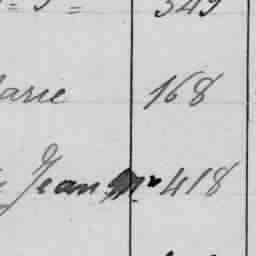 349
arie 168
Jean Mᵉ 418